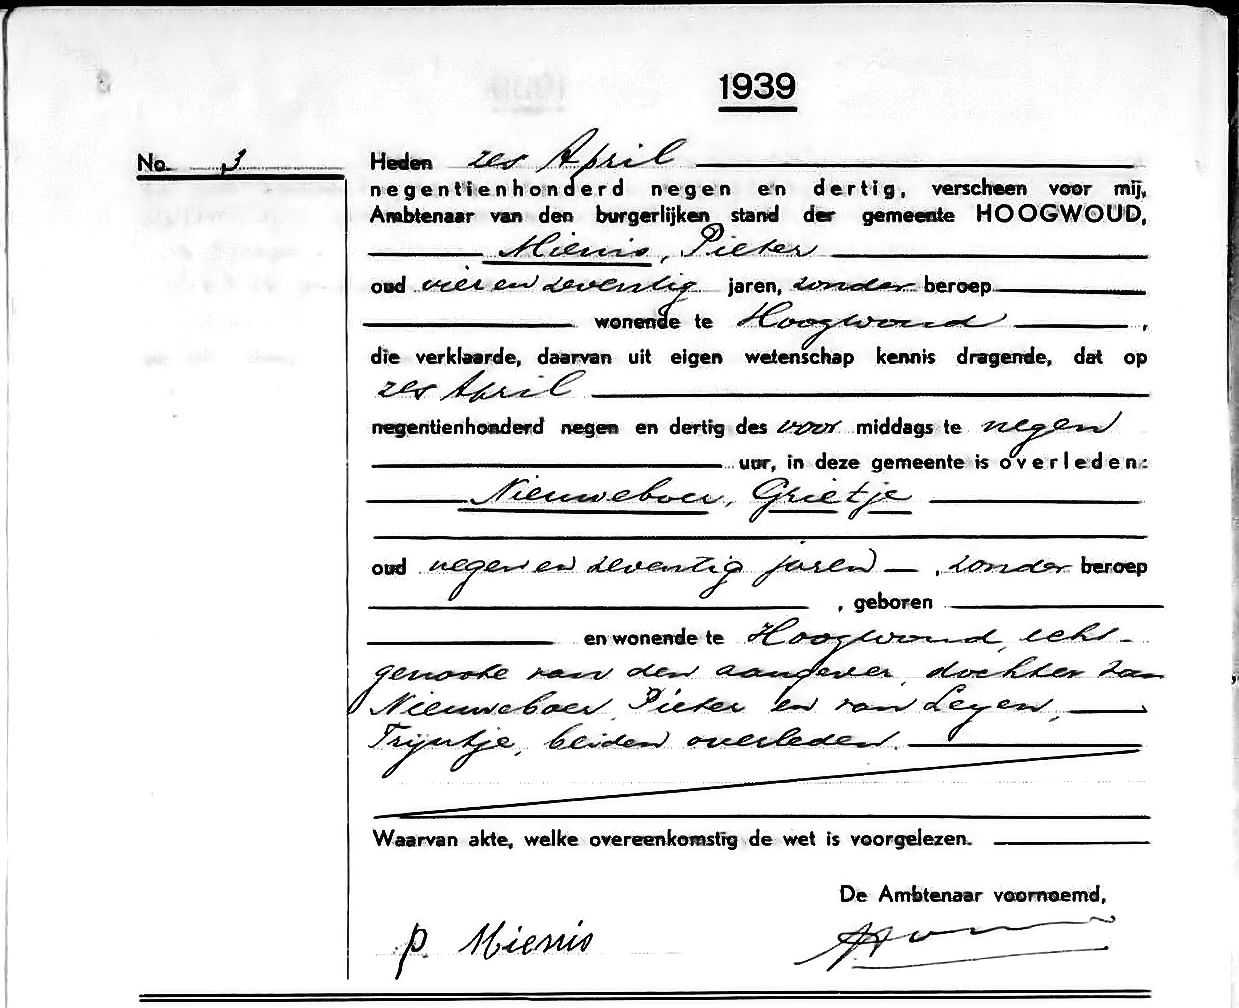 1939
No. 3
Heden zes April
negentienhonderd negen en dertig, verscheen voor mij,
Ambtenaar van den burgerlijken stand der gemeente HOOGWOUD,
Mienis, Pieter
oud vier en zeventig jaren, zonder beroep
wonende te Hoogwoud,
die verklaarde, daarvan uit eigen wetenschap kennis dragende, dat op
zes April
negentienhonderd negen en dertig des voor middags te negen
uur, in deze gemeente is overleden:
Nieuweboer, Grietje
oud negen en zeventig jaren, zonder beroep
, geboren
en wonende te Hoogwoud, echt-
genoote van den aangever, dochter van
Nieuweboer, Pieter en van Leyen,
Trijntje, beiden overleden.
Waarvan akte, welke overeenkomstig de wet is voorgelezen.
De Ambtenaar voornoemd,
P. Mienis